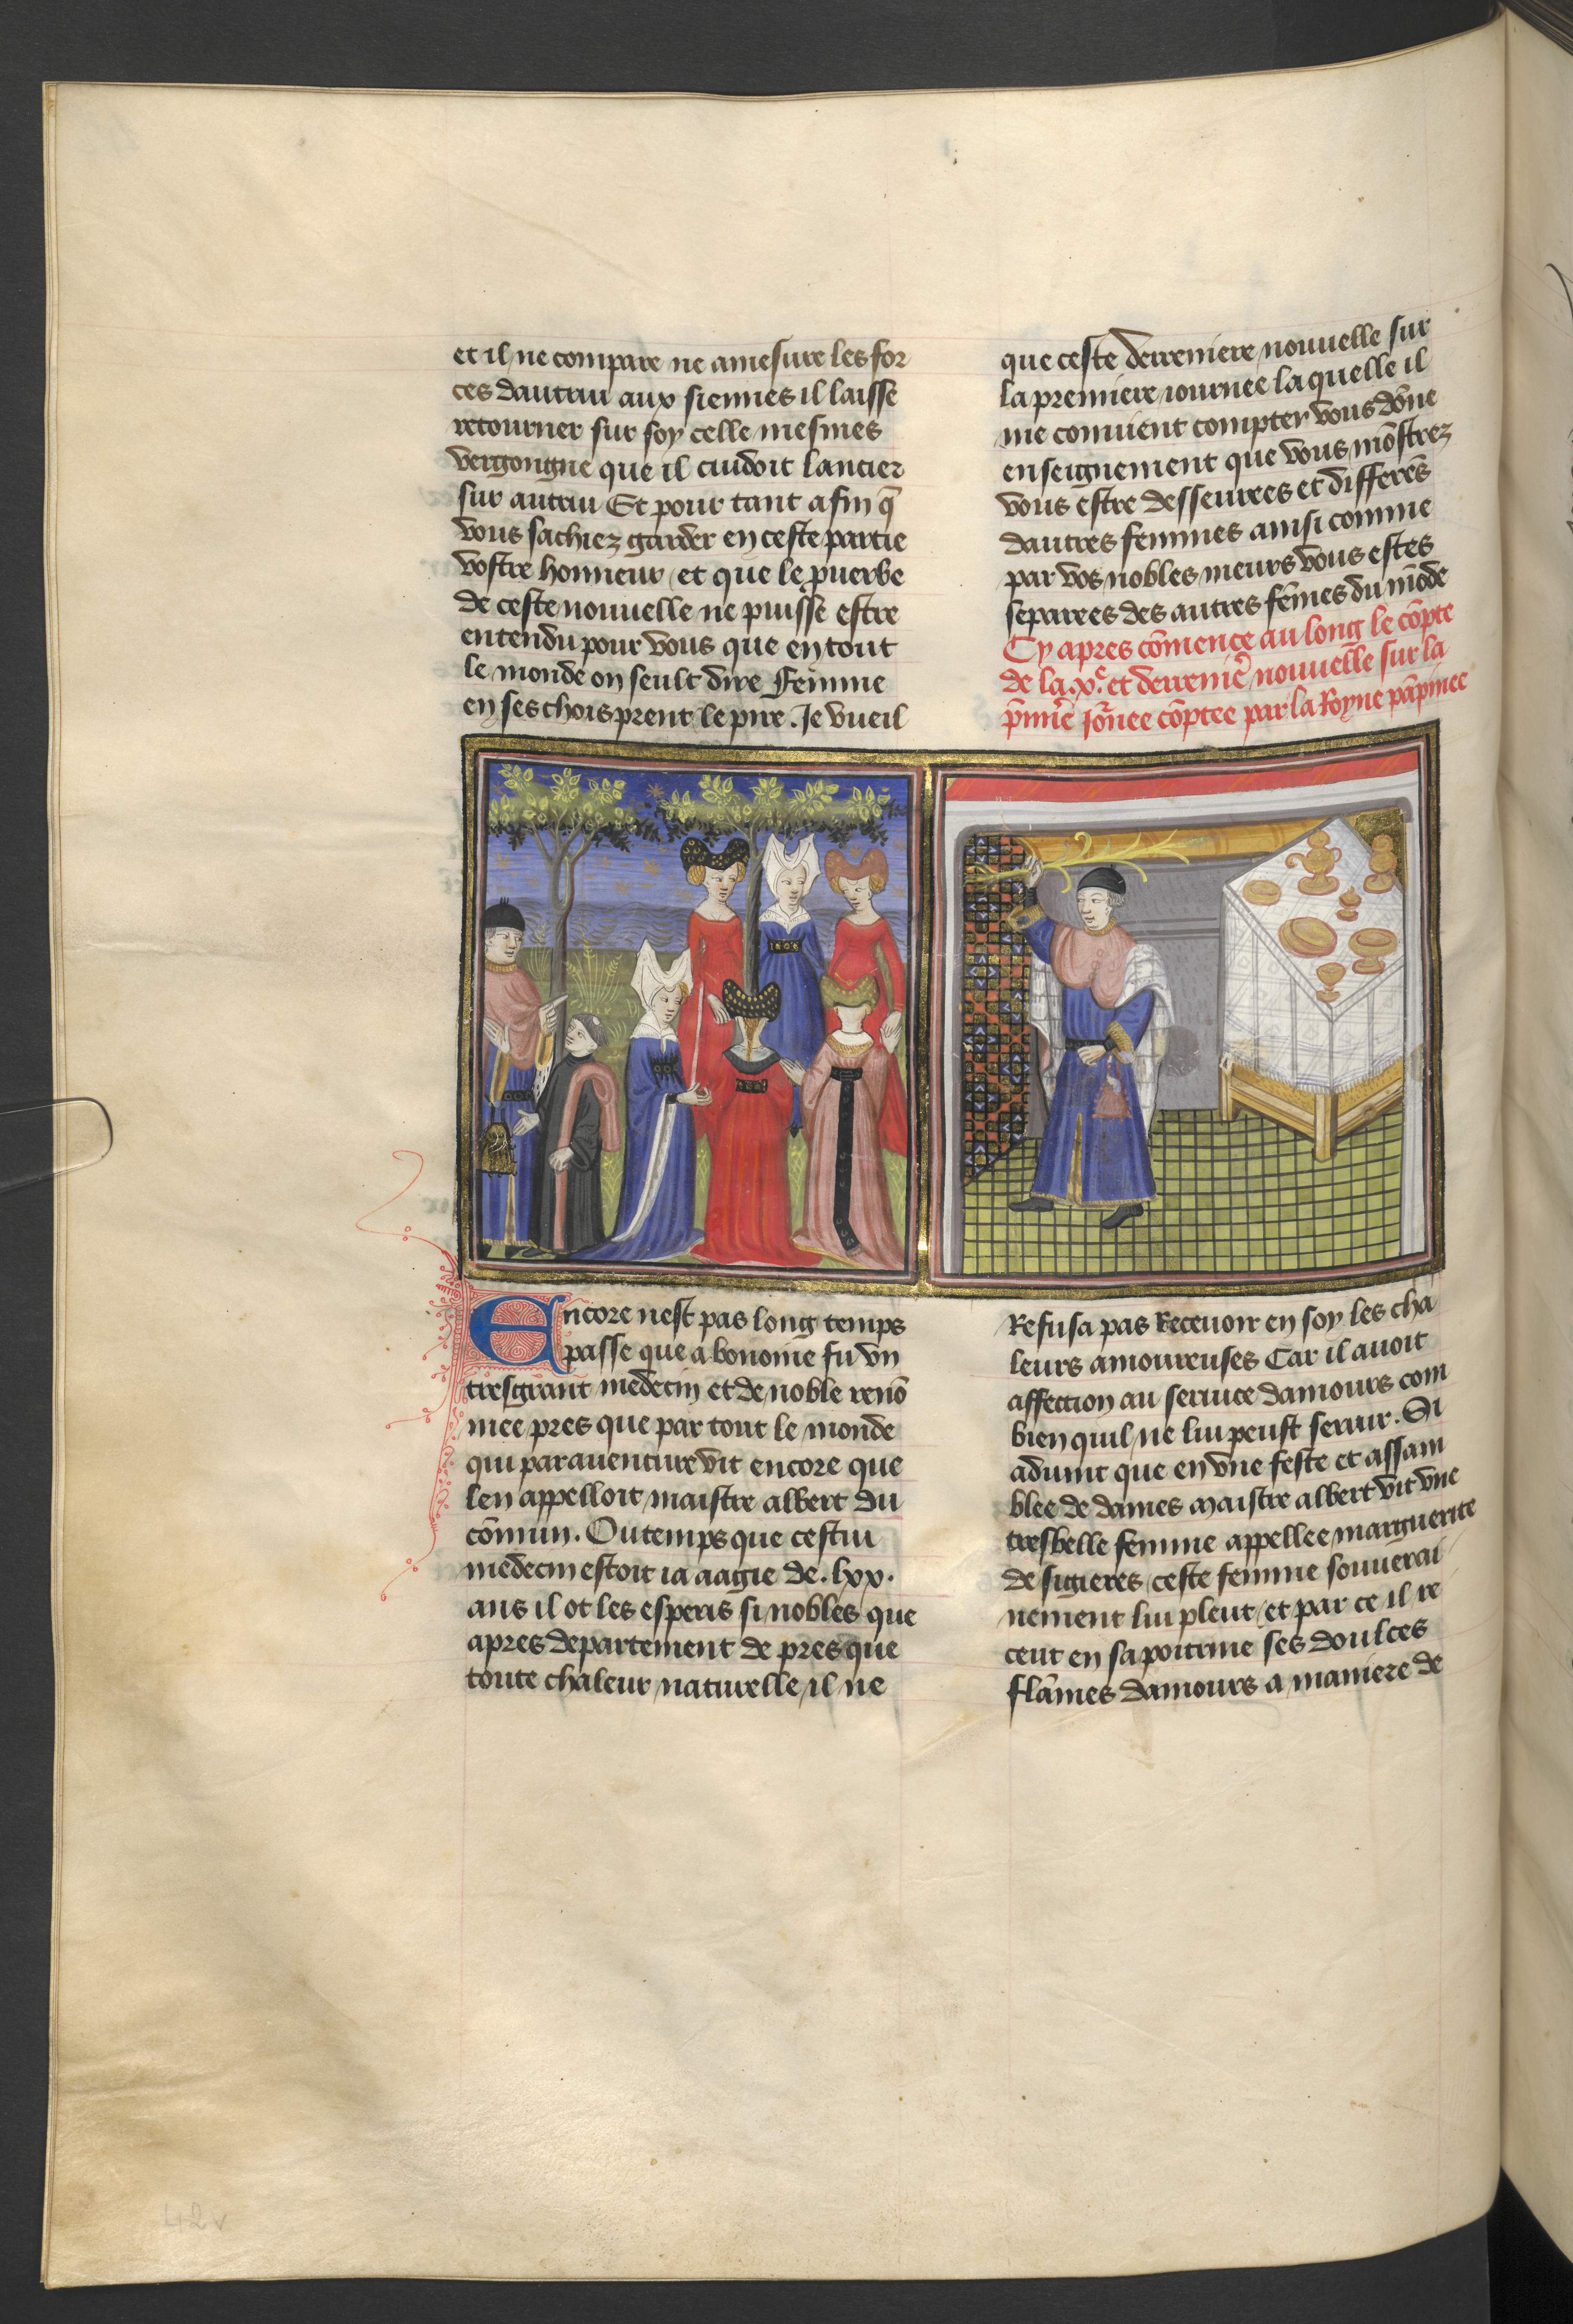 et il ne compare ne amesure les for
ces dautrui aux siennes il laisse
retourner sur soy celle mesmes
vergongne que il cuidoit lancier
sur autrui Et pour tant afin q̄
vous sachiez garder en ceste partie
vostre honneur et que le ꝓuerbe
de ceste nouuelle ne puisse estre
entendu pour vous que en tout
le monde on seult dire Femme
en ses chois prent le pire. Je vueil
que ceste derreniere nouuelle sur
la premiere iournee la quelle il
me conuient compter vous dōne
enseignement que vous mōstrez
vous estre desseurees et differēs
dautres femmes ainsi comme
par vos nobles meurs vous estes
separees des autres fēmes du mōde
Cy apres cōmence au long le cōpte
de la .xͤ. et derrenie᷑ nouuelle sur la
p̄mie᷑ Jo᷑nee cōptee par la Royne pāpinee
Encore nest pas long temps
passe que a bonoine fu vn
tresgrant medecin et de noble renō
mee pres que par tout le monde
qui par auenture vit encore que
len appelloit maistre albert du
cōmun. Ou temps que cestui
medecin estoit ia aagie de .lxx.
ans il ot les esperis si nobles que
apres departement de pres que
toute chaleur naturelle il ne
Refusa pas Receuoir en soy les cha
leurs amoureuses Car il auoit
affection au seruice damours com
bien quil ne lui peust seruir. Si
aduint que en vne feste et assam
blee de dames maistre albert vit vne
tresbelle femme appellee marguerite
de sigieres ceste femme souuerai
nement lui pleut et par ce il re
ceut en sa poitrine ses doulces
flāmes damours a maniere de
42v